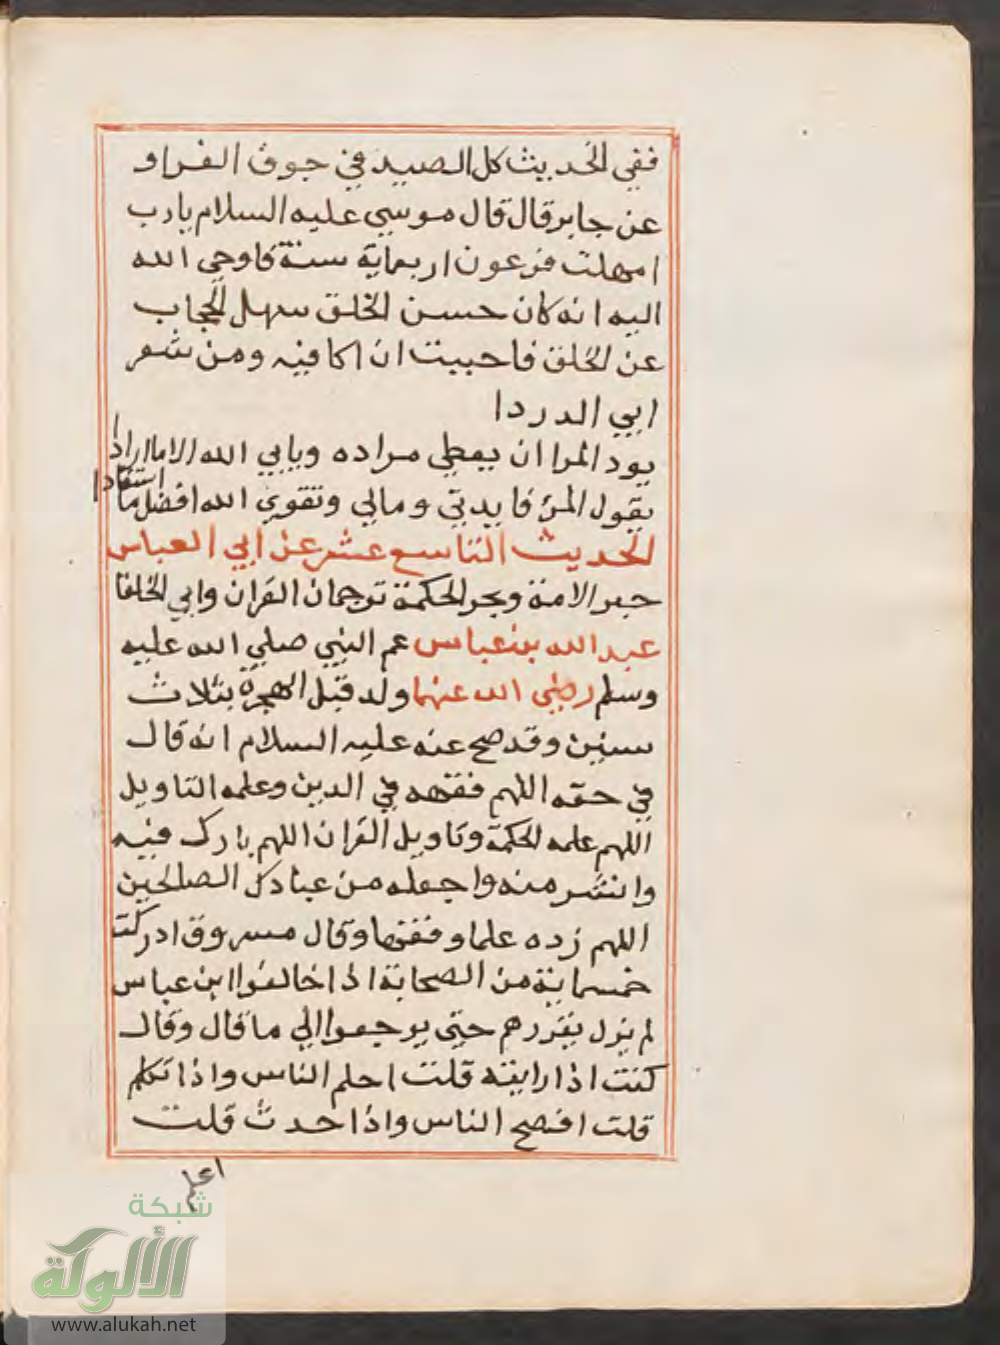 ففي الحديث كل الصيد في جوف الفرا و
عن جابر قال قال موسي عليه السلام يا رب
امهلت فرعون اربعماية سنة فاوحي الله
اليه انه كان حسن الخلق سهل الحجاب
عن الخلق فاحببت ان اكافيه ومن شعر
ابي الدردا
يود المرا ان يعطي مراده ويابي الله الا ما ارادا
يقول المرء فايدتي ومالي وتقوي الله افضل ما
استفادا
الحديث التاسع عشر عن ابي العباس
حبر الامة وبحر الحكمة ترجمان القران وابي الخلفا
عبد الله بن عباس عم النبي صلي الله عليه
وسلم رضي الله عنهما ولد قبل الهجرة بثلاث
سنين وقد صح عنه عليه السلام انه قال
في حقه اللهم فقهه في الدين وعلمه التاويل
اللهم علمه الحكمة وتاويل القران اللهم بارك فيه
وانشر منه واجعله من عبادك الصالحين
اللهم زده علما وفقها وقال مسروق ادركت
خمسماية من الصحابة اذا خالفوا ابن عباس
لم يزل يقررهم حتي يرجعوا الي ما قال وقال
كنت اذا رايته قلت احلم الناس واذا تكلم
قلت افصح الناس واذا حدث قلت
اعلم
شبكة
الألوكة
www.alukah.net